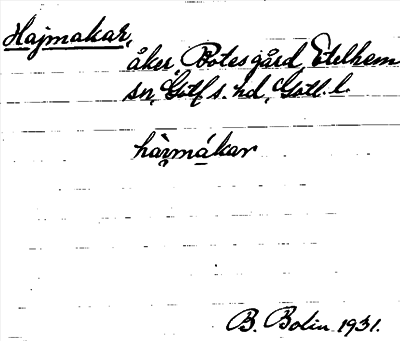 Hajmakar,
åker, Botesgård, Etelhem
sn, Gotl. s. hd, Gotl. l.
hàrmákar
B. Bolin 1931.